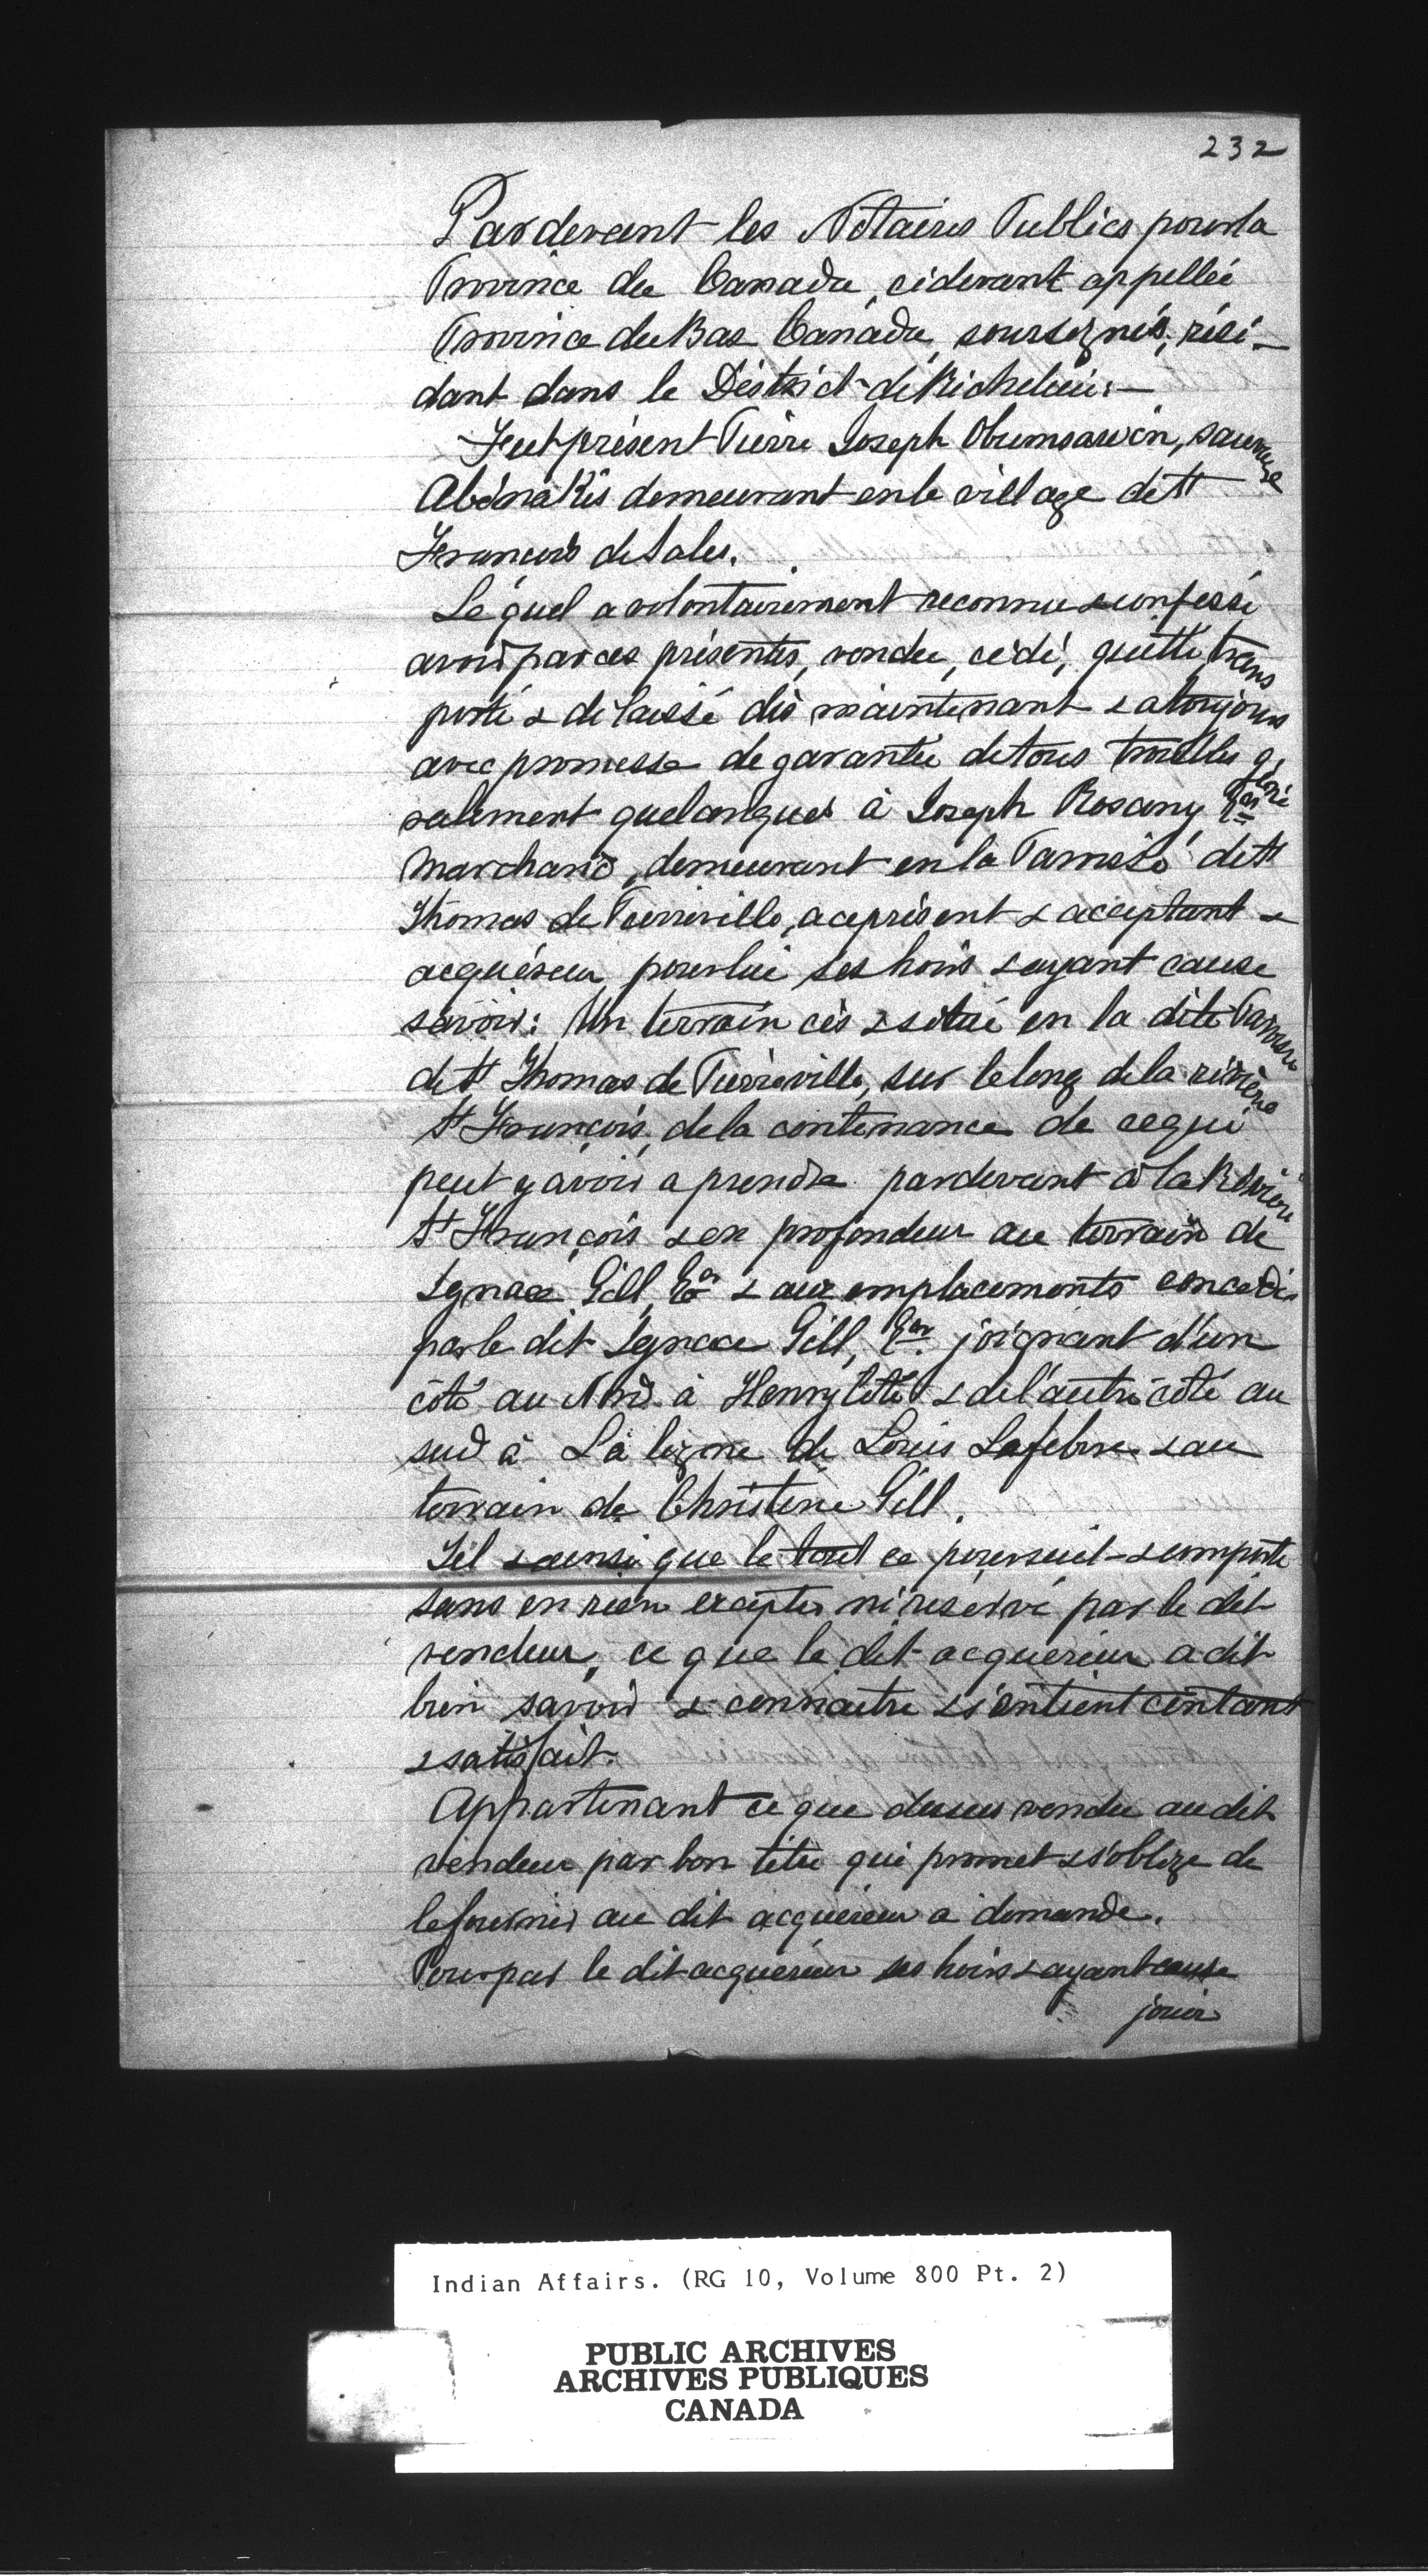 232
Pardevant les Notaires Publics pour la
Province du Canada, cidevant appellée
Province du Bas Canada, soussignés, rési-
dant dans le District de Richelieu:—
Fut présent Pierre Joseph Obumsawin, sauvage
Abénakis demeurant en le village de St
François de Sales.
Lequel a volontairement reconnu & confessé
avoir par ces présentes, vendu, cédé, quitté, trans
porté & délaissé dès maintenant & a toujours
avec promesse de garantie de tous troubles géné
ralement quelconques à Joseph Rosany Er
Marchand, demeurant en la Paroisse de St
Thomas de Pierreville, a ce présent & acceptant &
acquéreur pour lui ses hoirs & ayant cause
savoir: Un terrain cis & situé en la dite Paroisse
de St Thomas de Pierreville, sur le long de la rivière
St François, de la contenance de ce qui
peut y avoir a prendre pardevant à la Rivière
St François & en profondeur au terrain de
Ignace Gill, Er & aux emplacements concédés
par le dit Ignace Gill, Er. joignant d'un
côté au Nord à Henry Coté & de l'autre côté au
sud à La ligne de Louis Lafebvre & au
terrain de Christine Gill.
Tel & ainsi que le tout ce poursuit & comporte
sans en rien excepter ni réservé par le dit
vendeur, ce que le dit acquereur a dit
bien savoir & connaitre & s'en tient contant
& satisfait.
Appartenant ce que dessus vendu au dit
vendeur par bon titre qui promet & s'oblige de
le fournir au dit acquereur a demande.
Pour par le dit acquereur ses hoirs & ayant cause
jouir
Indian Affairs. (RG 10, Volume 800 Pt. 2)
PUBLIC ARCHIVES
ARCHIVES PUBLIQUES
CANADA